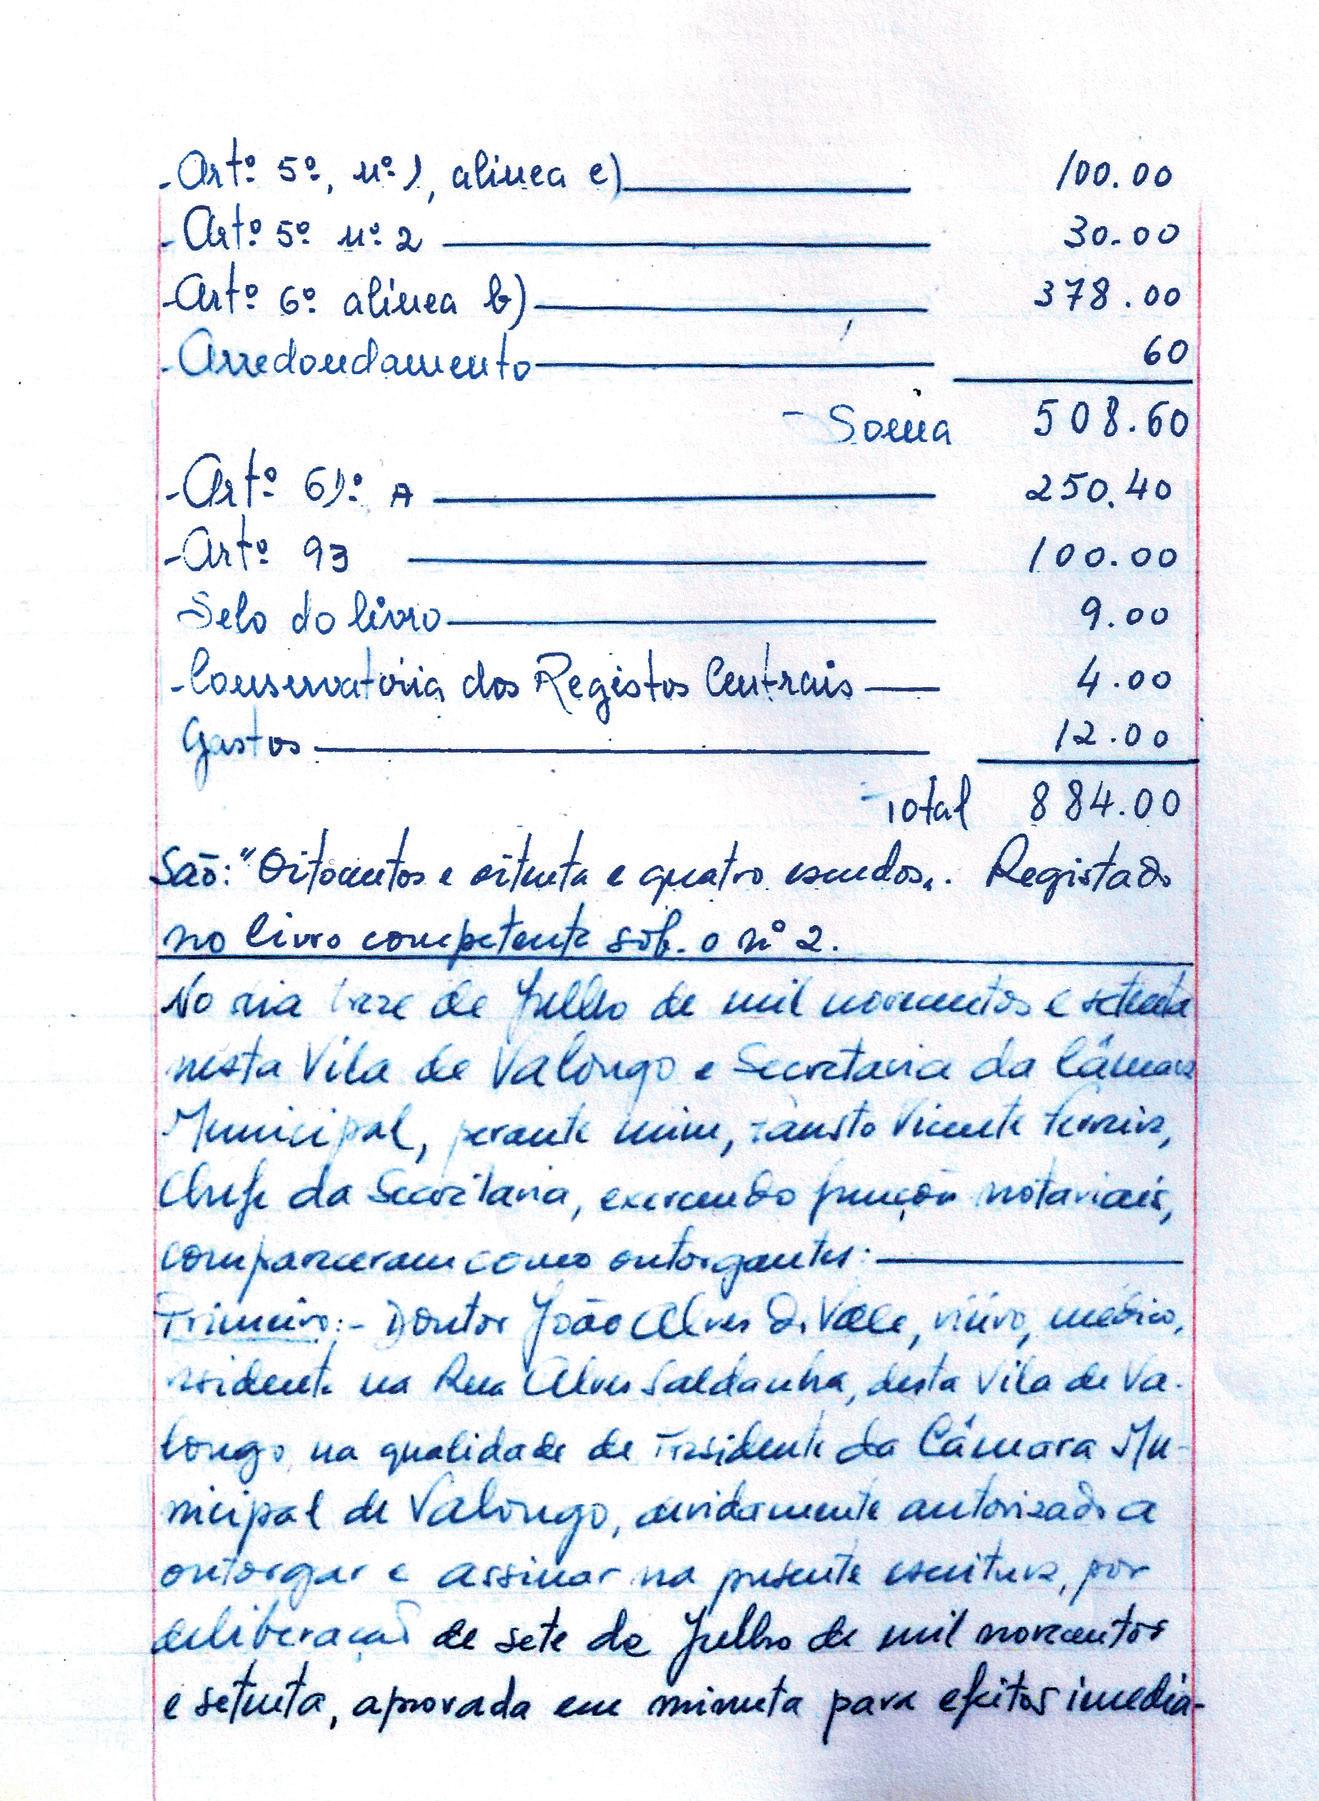 - Artº 5º, nº 1, alinea e) 100.00
- Artº 5º nº 2 30.00
- Artº 6º alínea b) 378.00
- Arredondamento 60
- Soma 508.60
- Artº 61º A 250.40
- Artº 93 100.00
Selo do livro 9.00
- Conservatória dos Registos Centrais 4.00
Gastos 12.00
- Total 884.00
São: "Oitocentos e oitenta e quatro escudos". Registado
no livro competente sob. o nº 2.
No dia treze de Julho de mil novecentos e setenta
nesta Vila de Valongo e Secretaria da Câmara
Municipal, perante mim, Fausto Vicente Ferreira,
Chefe da Secretaria, exercendo funções notariais,
compareceram como outorgantes:
Primeiro:- Doutor João Alves do Vale, viúvo, médico,
residente na Rua Alves Saldanha, desta Vila de Va-
longo, na qualidade de Presidente da Câmara Mu-
nicipal de Valongo, devidamente autorizado a
outorgar e assinar na presente escritura, por
deliberação de sete de Julho de mil novecentos
e setenta, aprovada em minuta para efeitos imedia-